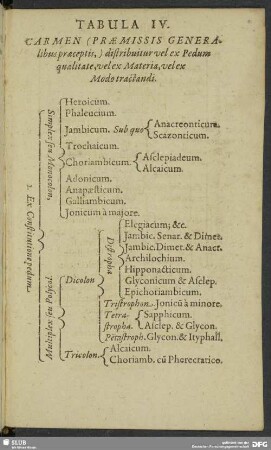 TABULA IV.
CARMEN (PRÆMISSIS GENERA-
libus præceptis,) distribuitur vel ex Pedum
qualitate, vel ex Materia, vel ex
Modo tractandi.
1. Ex Constitutione pedum.
Simplex seu Monocolon,
Heroicum.
Phaleucium.
Jambicum. Sub quo
Anacreonticum.
Scazonticum.
Trochaicum.
Choriambicum.
Asclepiadeum.
Alcaicum.
Adonicum.
Anapæsticum.
Galliambicum.
Jonicum à majore.
Multiplex seu Polycol.
Dicolon
Distropha
Elegiacum; &c.
Jambic. Senar. & Dimet.
Jambic. Dimet. & Anacr.
Archilochium.
Hipponacticum.
Glyconicum & Asclep.
Epichoriambicum.
Tristrophon. Jonicũ à minore.
Tetra-
stropha.
Sapphicum.
Asclep. & Glycon.
Pentastroph. Glycon. & Ityphall.
Tricolon.
Alcaicum.
Choriamb. cũ Pherecratico.
SLUB